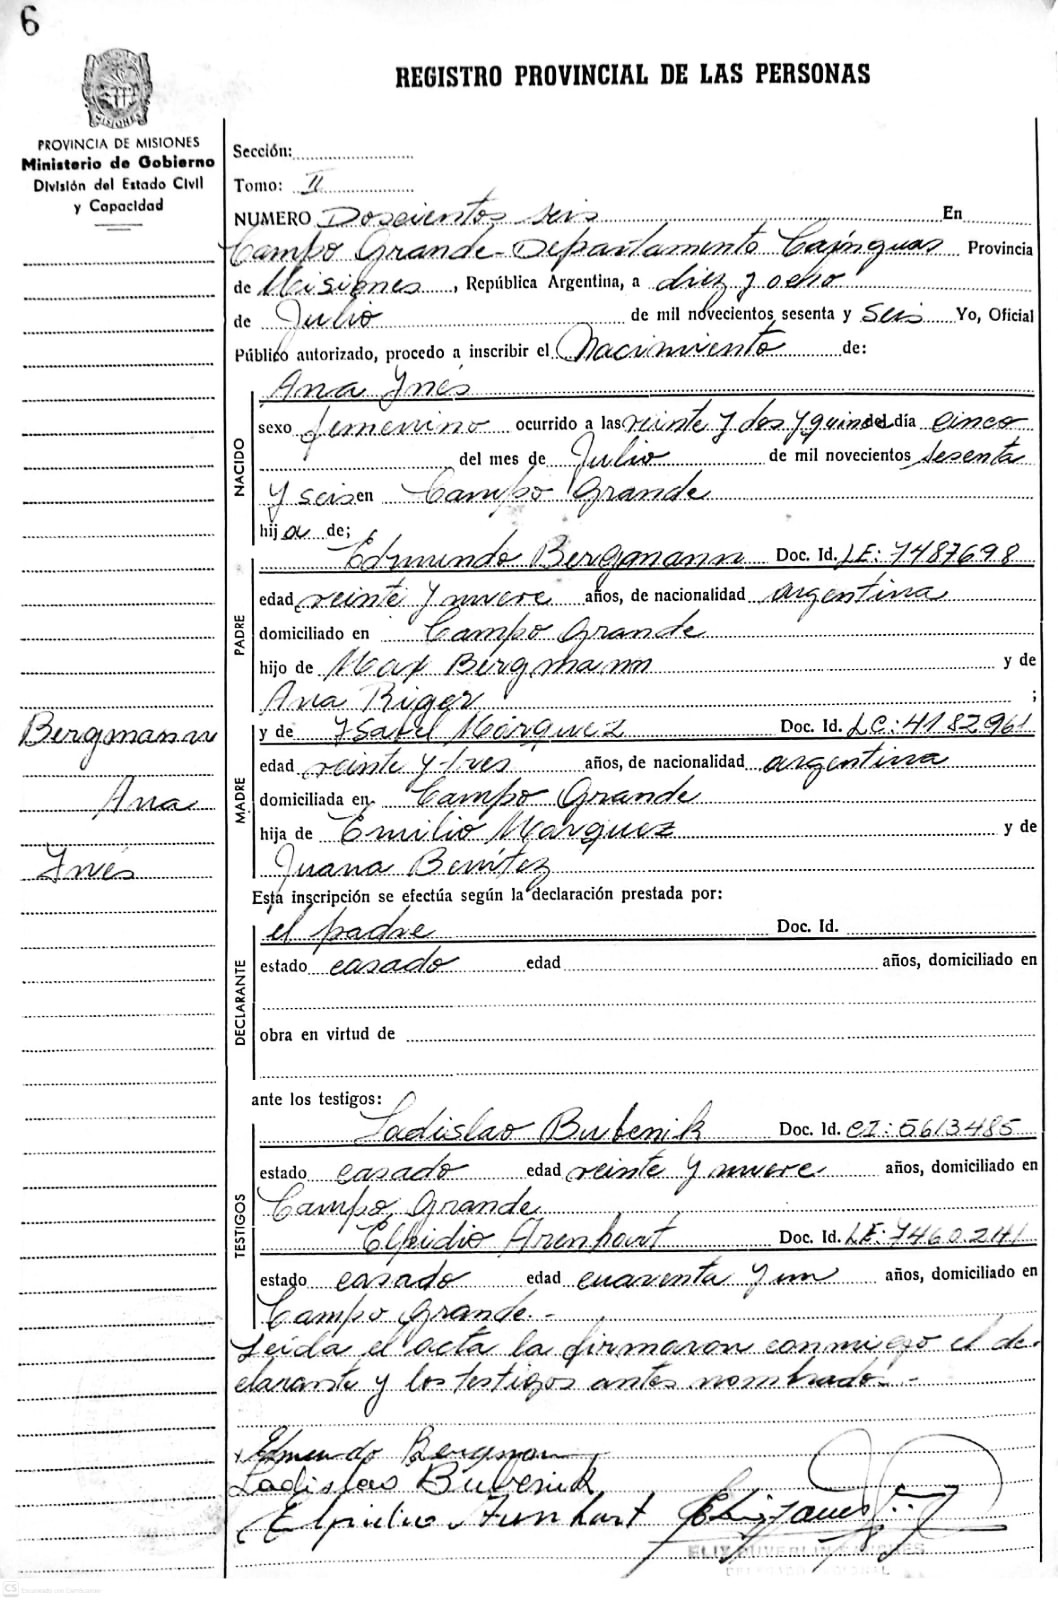 6
REGISTRO PROVINCIAL DE LAS PERSONAS
MISIONES
PROVINCIA DE MISIONES
Ministerio de Gobierno
División del Estado Civil
y Capacidad
Sección:
Tomo: II
NUMERO Doscientos seis En
Campo Grande - Departamento Cainguas Provincia
de Misiones, República Argentina, a diez y ocho
de Julio de mil novecientos sesenta y seis Yo, Oficial
Público autorizado, procedo a inscribir el Nacimiento de:
NACIDO
Ana Ynés
sexo femenino ocurrido a las veinte y dos y quince del día cinco
del mes de Julio de mil novecientos sesenta
y seis en Campo Grande
hija de;
PADRE
Edmundo Bergmann Doc. Id. LE: 7487698
edad veinte y nueve años, de nacionalidad argentina
domiciliado en Campo Grande
hijo de Max Bergmann y de
Ana Riger ;
MADRE
y de Ysabel Márquez Doc. Id. LC: 4182961
edad veinte y tres años, de nacionalidad argentina
domiciliada en Campo Grande
hija de Emilio Márquez y de
Juana Benítez
Bergmann
Ana
Ynés
Esta inscripción se efectúa según la declaración prestada por:
DECLARANTE
el padre Doc. Id.
estado casado edad años, domiciliado en
obra en virtud de
ante los testigos:
TESTIGOS
Ladislao Bubenik Doc. Id. CI: 5613485
estado casado edad veinte y nueve años, domiciliado en
Campo Grande
Elpidio Arenhart Doc. Id. LE: 7460241
estado casado edad cuarenta y un años, domiciliado en
Campo Grande.-
Leída el acta la firmaron conmigo el de-
clarante y los testigos antes nombrado.-
x Edmundo Bergman
Ladislao Bubenik
Elpidio Arenhart
CS Escaneado con CamScanner